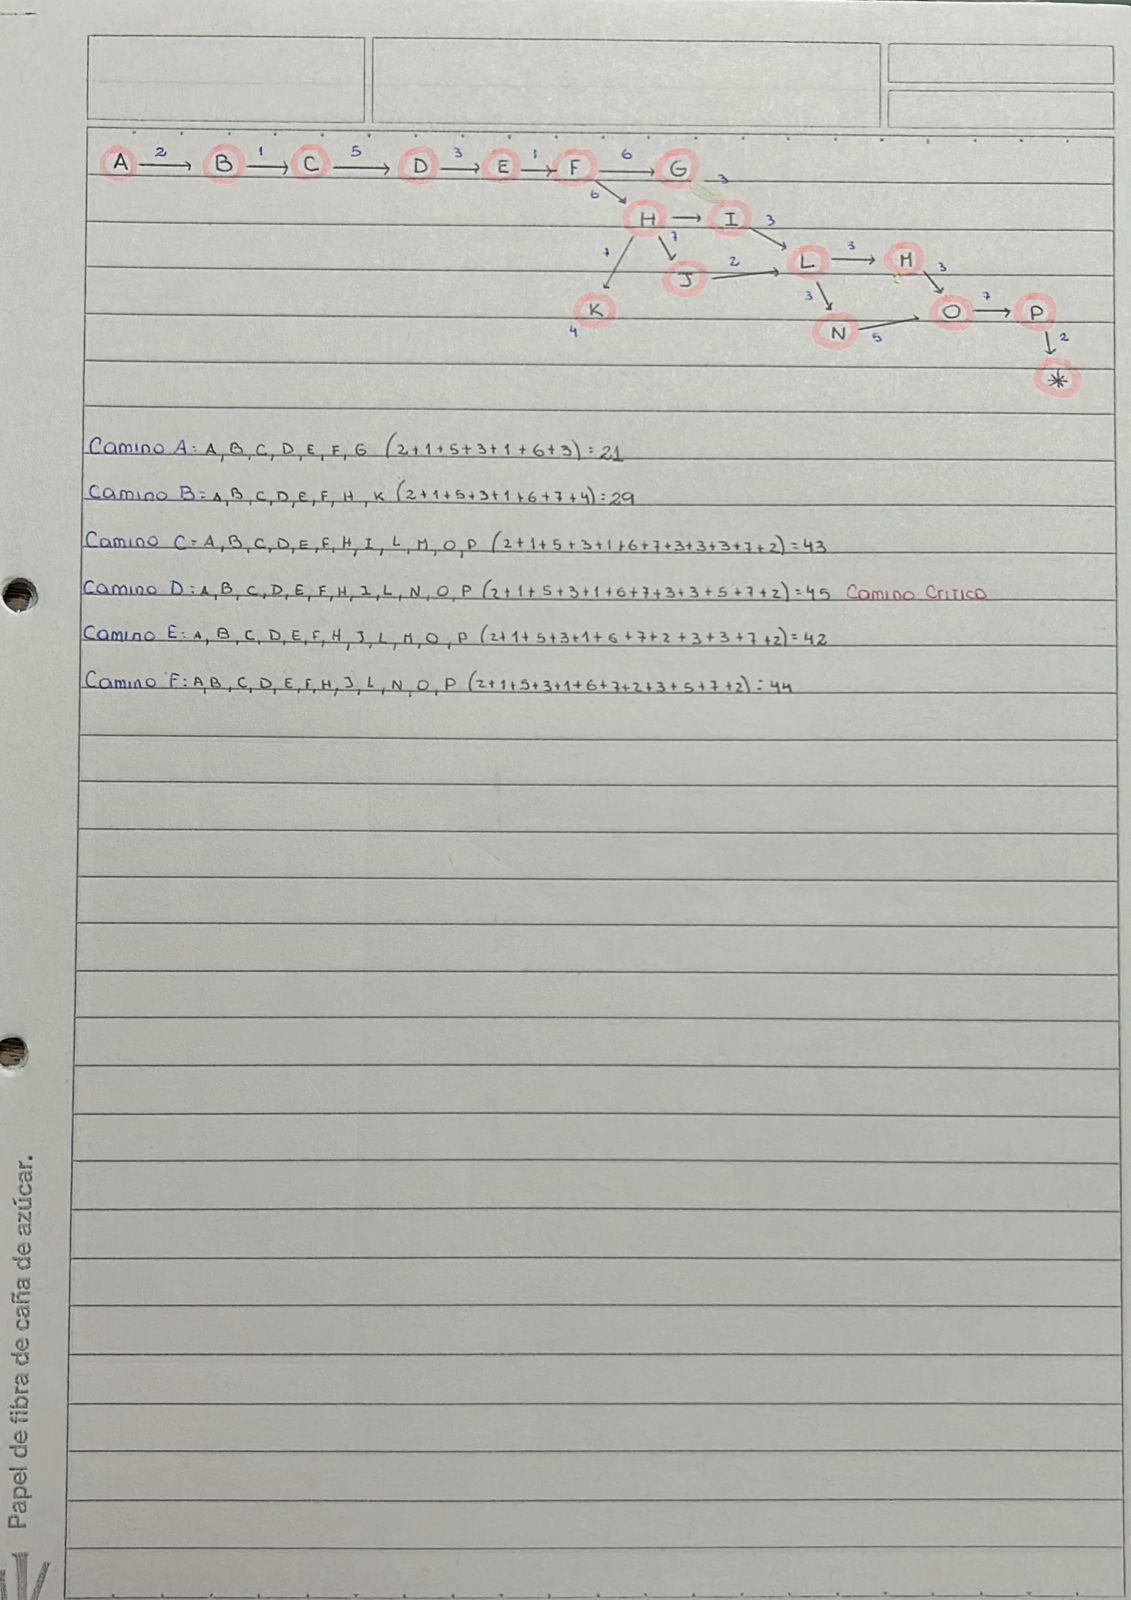 2 1 5 3 1 6
A B C D E F G 3
6
H I 3
7 7
J 2 L 3 M 3
K 3 O 7 P
4 N 5 2
*
Camino A: A, B, C, D, E, F, G (2+1+5+3+1+6+3) = 21
Camino B= A, B, C, D, E, F, H, K (2+1+5+3+1+6+7+4) = 29
Camino C= A, B, C, D, E, F, H, I, L, M, O, P (2+1+5+3+1+6+7+3+3+3+7+2) = 43
Camino D: A, B, C, D, E, F, H, I, L, N, O, P (2+1+5+3+1+6+7+3+3+5+7+2) = 45 Camino Critico
Camino E: A, B, C, D, E, F, H, J, L, M, O, P (2+1+5+3+1+6+7+2+3+3+7+2) = 42
Camino F: A, B, C, D, E, F, H, J, L, N, O, P (2+1+5+3+1+6+7+2+3+5+7+2) = 44
Papel de fibra de caña de azúcar.